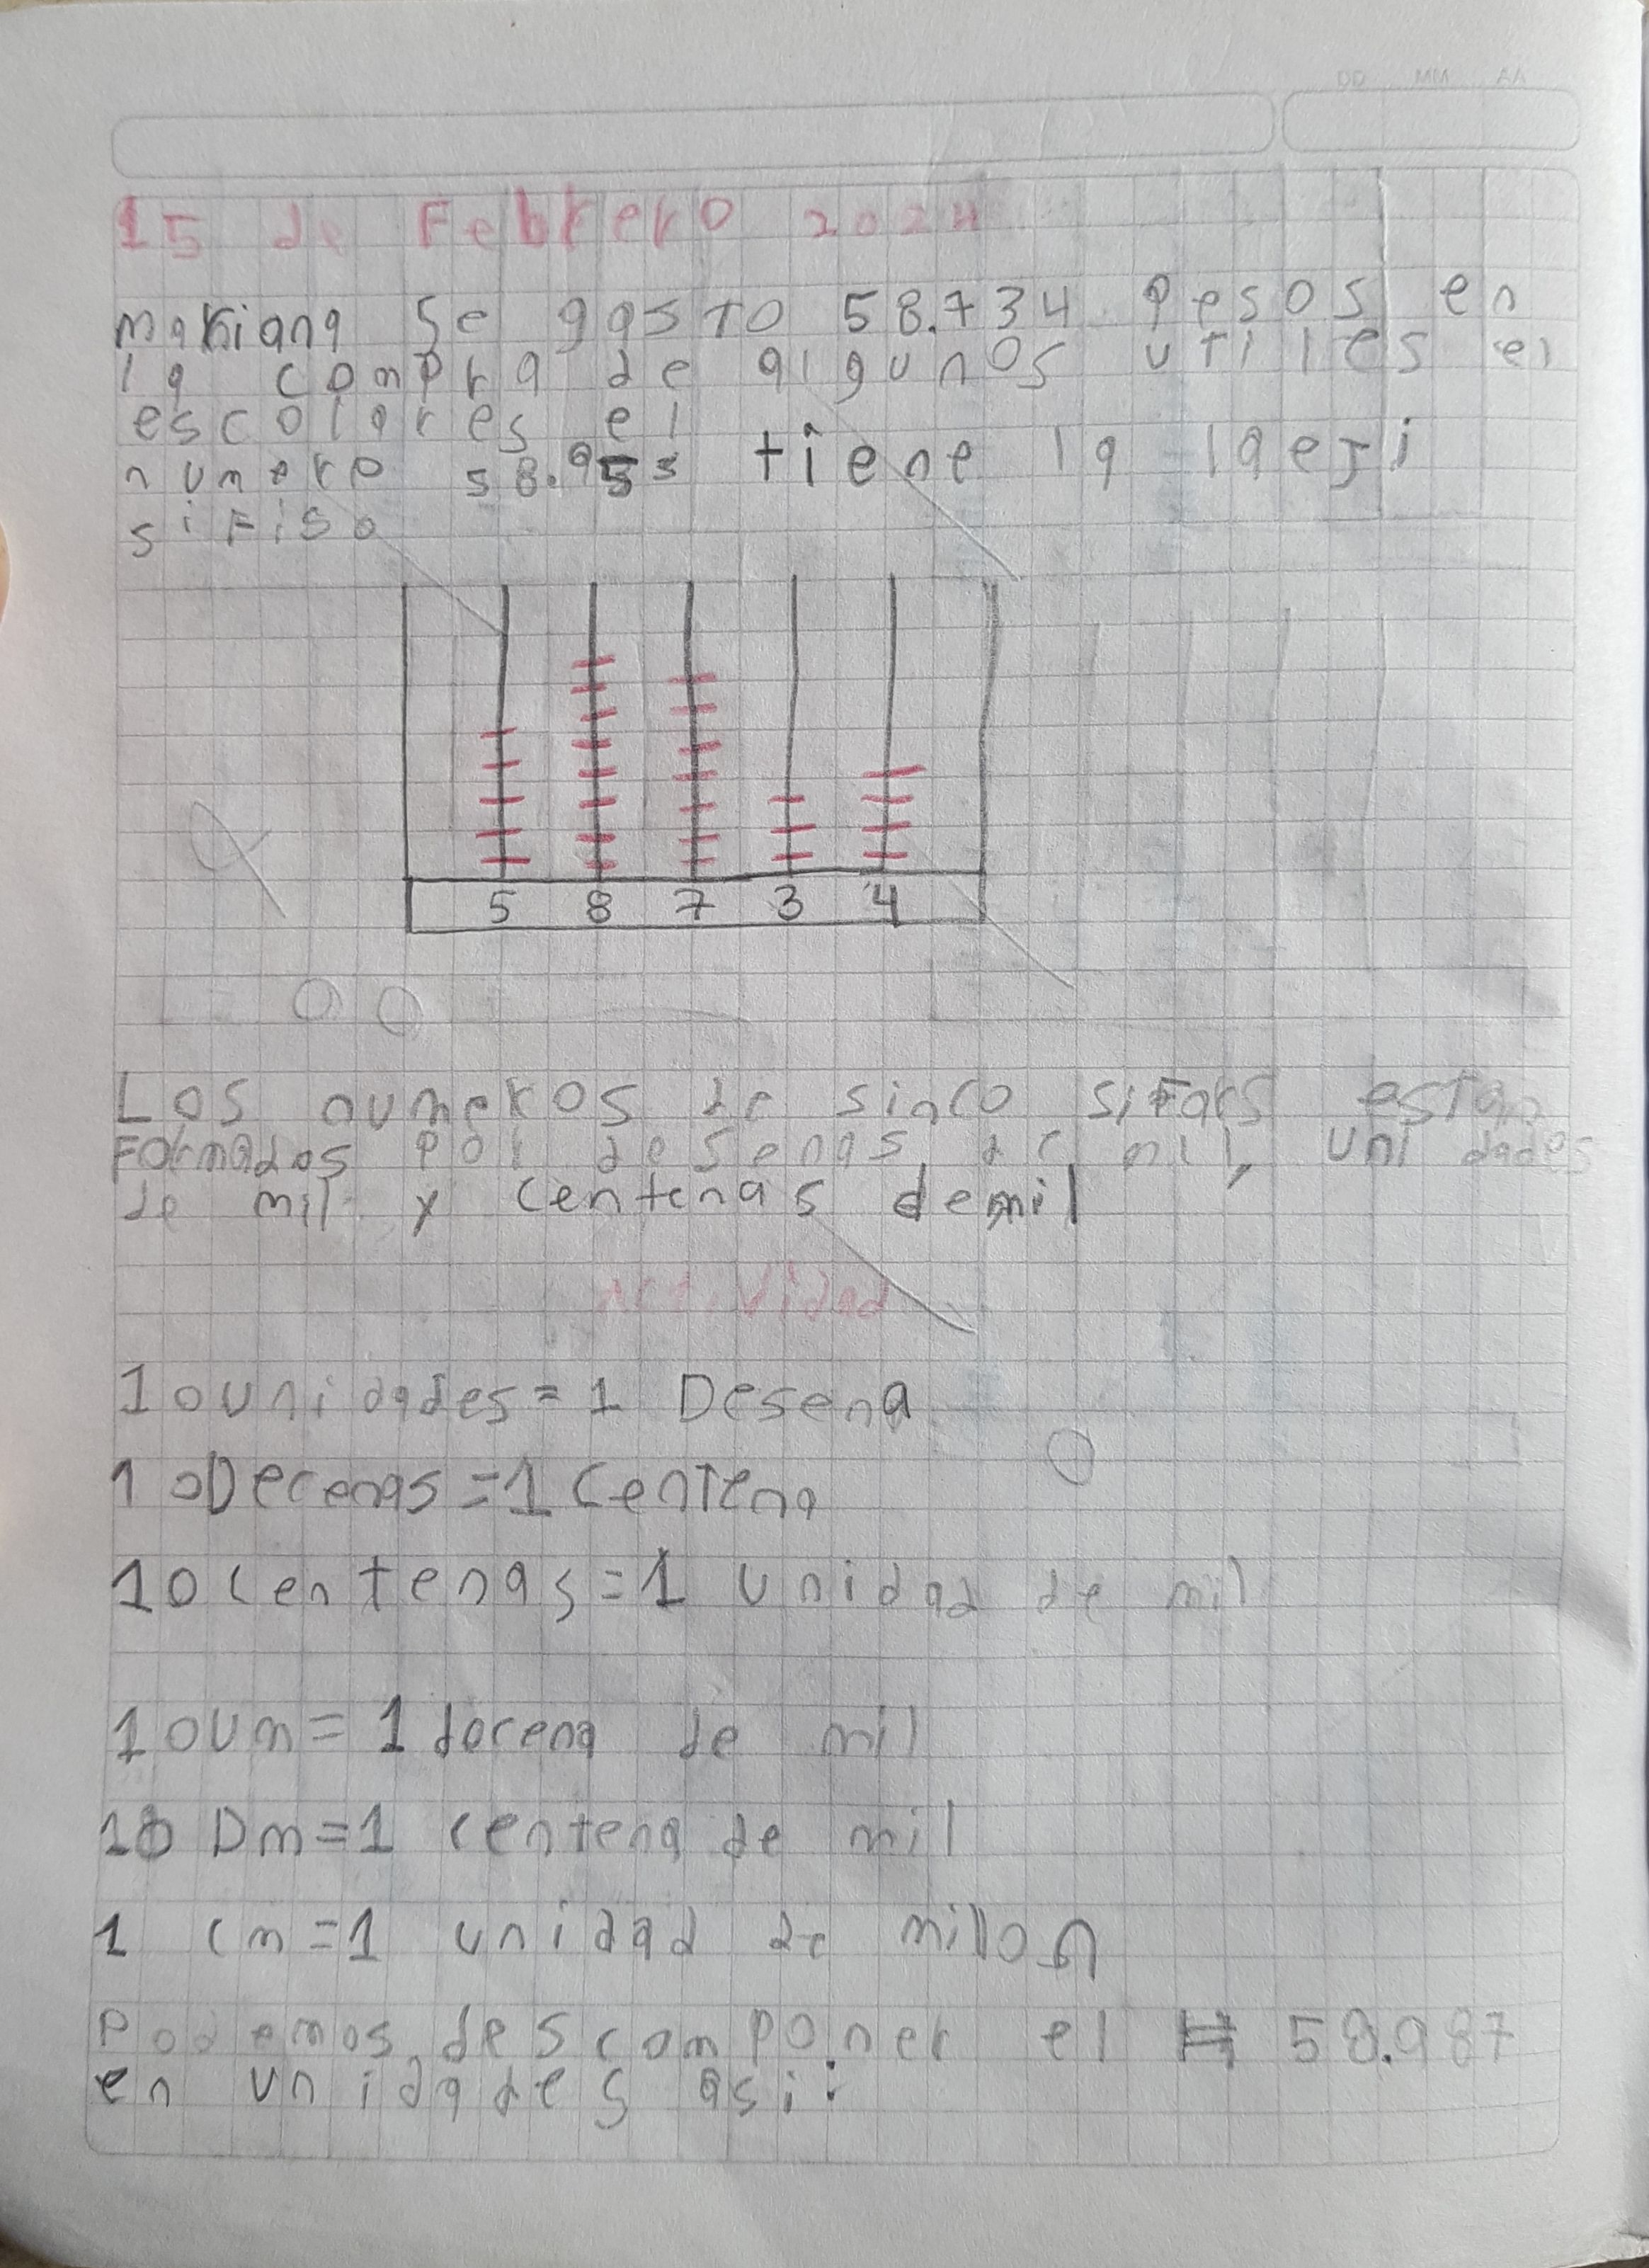 DD MM AA
15 de Febrero 2024
mariana Se gasto 58.734 Pesos en
la compra de algunos utiles el
escolares el
numero 58.955 tiene la
sifiso
5 8 7 3 4
Los numeros de sinco sifars estan
Formados por desenas de mil, unidades
de mil y centenas de mil
actividad
10 unidades = 1 Desena
10 Decenas = 1 Centena
10 centenas = 1 unidad de mil
10 um = 1 docena de mil
10 Dm = 1 centena de mil
1 cm = 1 unidad de millon
Podemos descomponer el # 58.987
en unidades asi: